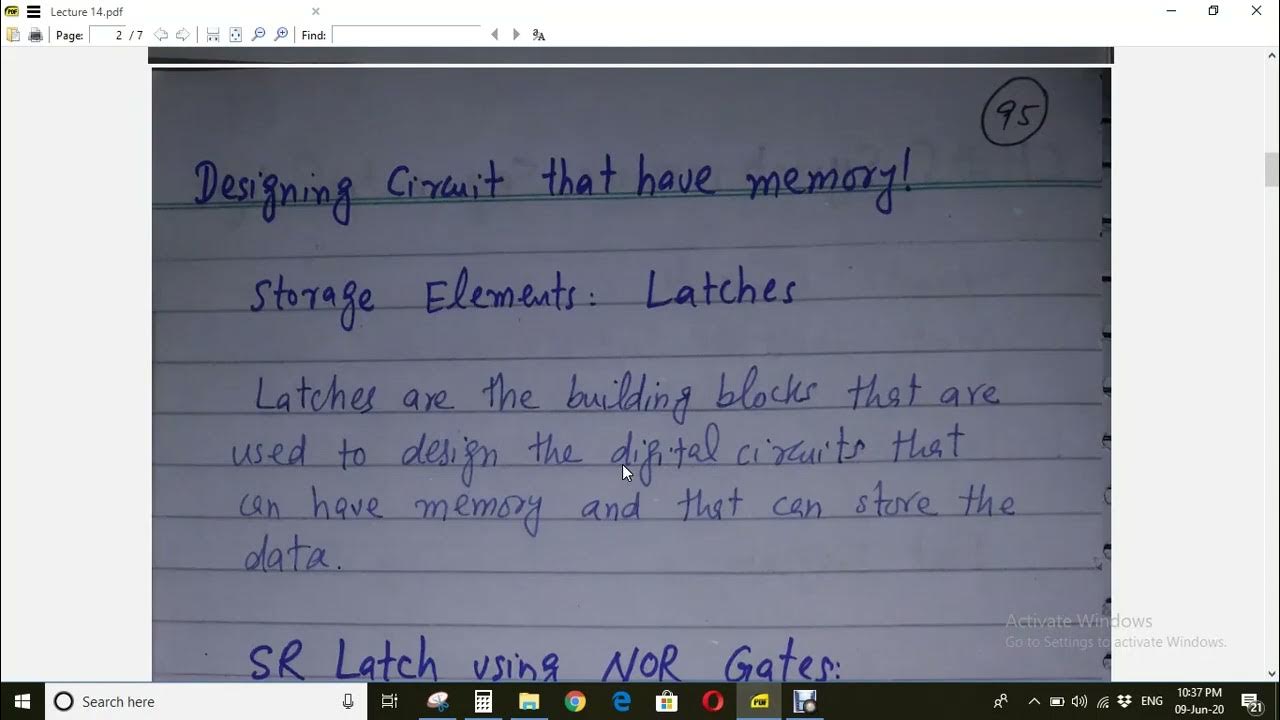 Lecture 14.pdf
Page: 2 / 7 Find:
95
Designing Circuit that have memory!
Storage Elements: Latches
Latches are the building blocks that are
used to design the digital circuits that
can have memory and that can store the
data.
SR Latch using NOR Gates:
Activate Windows
Go to Settings to activate Windows.
Search here
ENG
10:37 PM
09-Jun-20
21